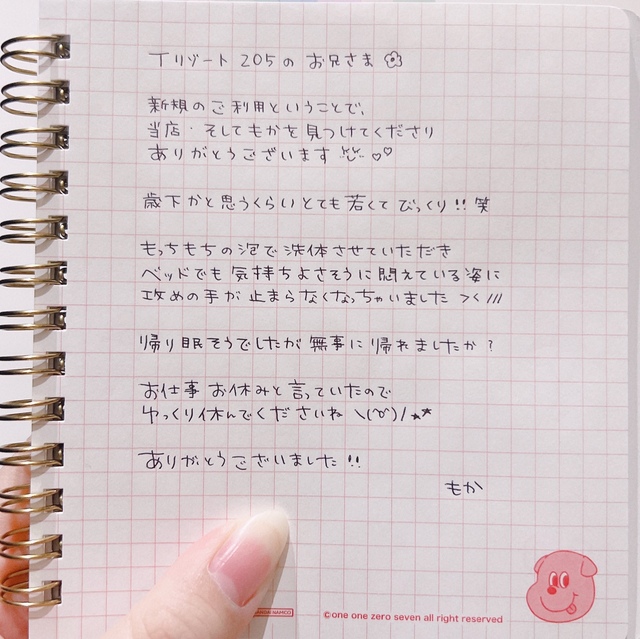 Tリゾート 205の お兄さま
新規のご利用ということで、
当店・そしてもかを見つけてくださり
ありがとうございます ♡♡
歳下かと思うくらいとても若くてびっくり!! 笑
もっちもちの泡で洗体させていただき
ベッドでも気持ちよさそうに悶えている姿に
攻めの手が止まらなくなっちゃいました ><///
帰り眠そうでしたが無事に帰れましたか?
お仕事お休みと言っていたので
ゆっくり休んでくださいね \(^o^)/★★
ありがとうございました!!
もか
NAMCO
©one one zero seven all right reserved